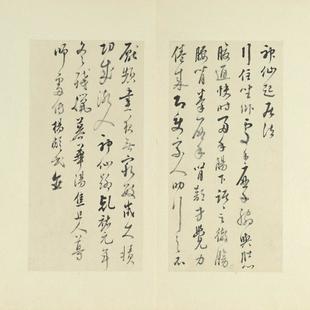 神仙起居法
行住坐卧處手摩脅與肚心
腹通快時兩手腸下踞踞之徹膀
腰背拳摩腎部才覺力
倦來即使家人助行之不
厭頻晝夜無窮數歲久積
功成漸入神仙路乾祐元年
冬殘臘暮華陽焦上人尊
師處傳楊凝式